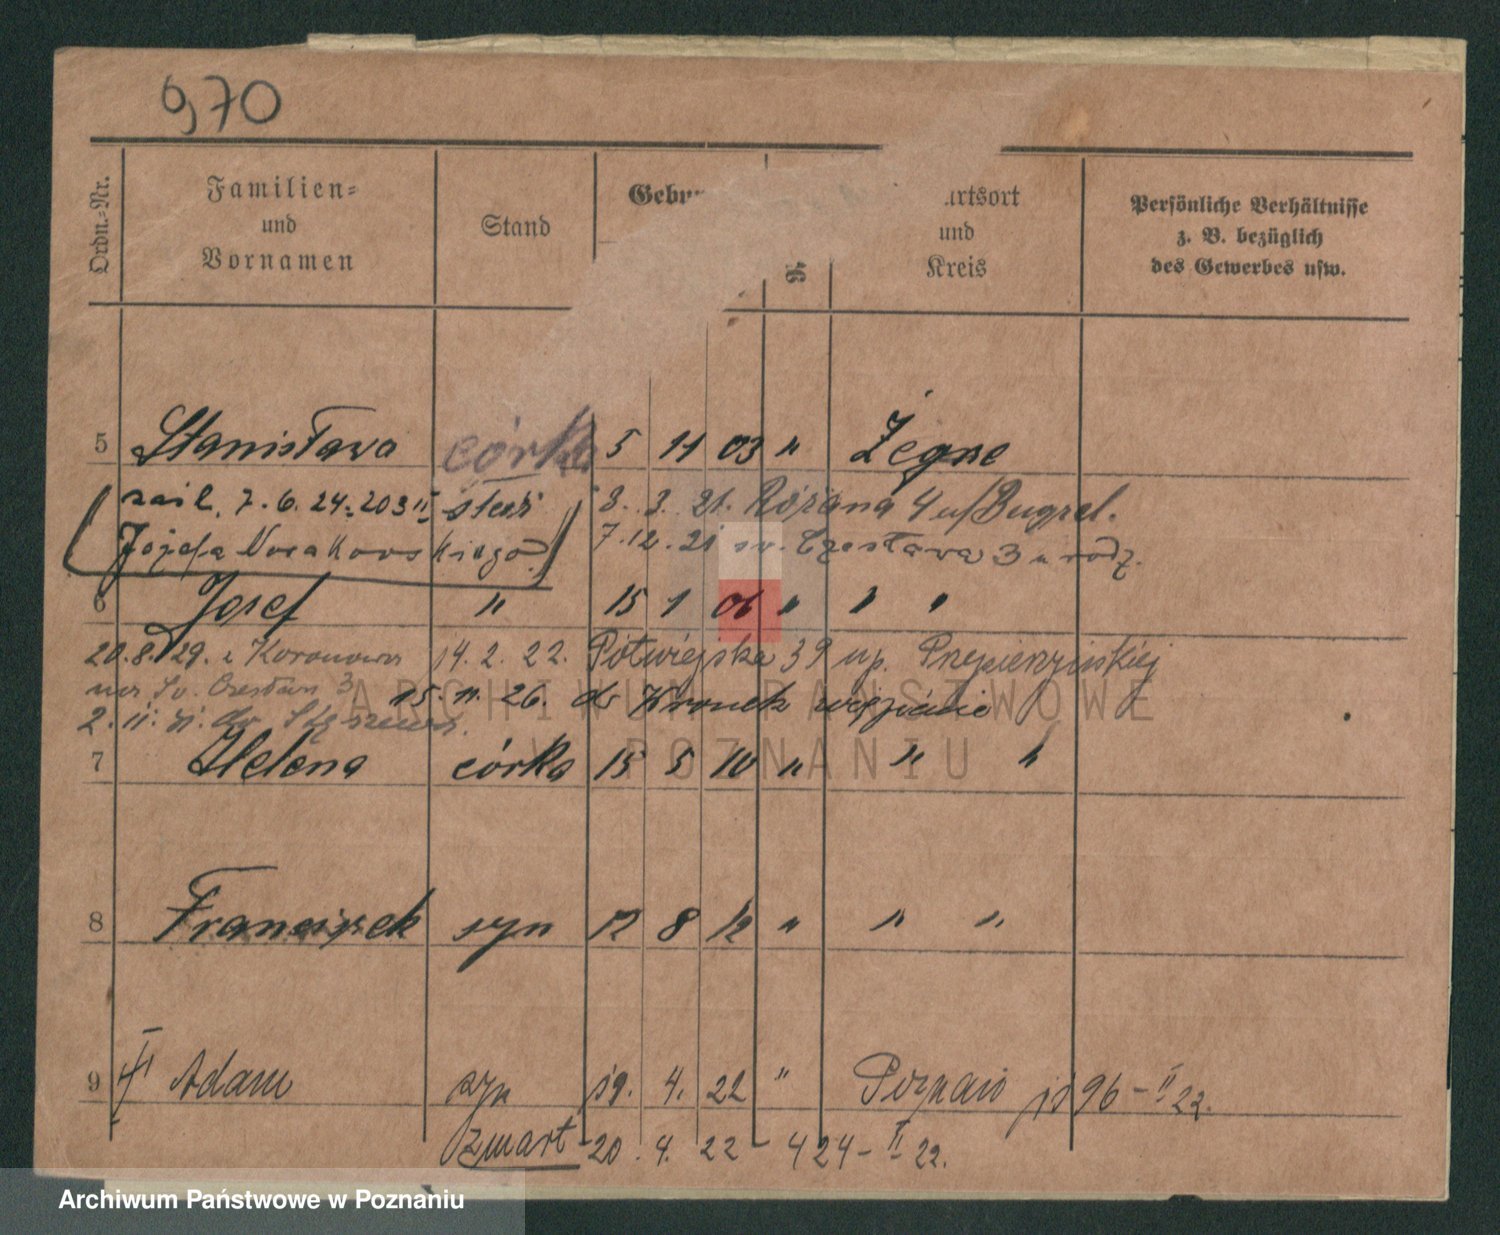 970
Ordn.-Nr.
Familien-
und
Vornamen
Stand
Gebur
urtsort
und
Kreis
Persönliche Verhältnisse
z. B. bezüglich
des Gewerbes usw.
5 Stanisława córka 5 11 03 "
7. 6. 24. 203 II 8. 3. 21. Różana 4 u/
Józefa Nowakowskiego 7. 12. 21 św. Czesława 3 u rodz.
6 Josef " 15 1 06 " " "
20. 8. 29. z Koronowa 14. 2. 22. Półwiejska 39 u p.
św. Czesława 3 15. 11. 26. do Wronek więzienie
2. 11. 31. do
7 Helena córka 15 5 10 " " "
8 Franciszek syn 12 8 12 " " "
9 Adam syn 19. 4. 22 " Poznań 96 - II 22.
zmarł 20. 4. 22 - 424 - II 22.
ARCHIWUM PAŃSTWOWE
W POZNANIU
Archiwum Państwowe w Poznaniu